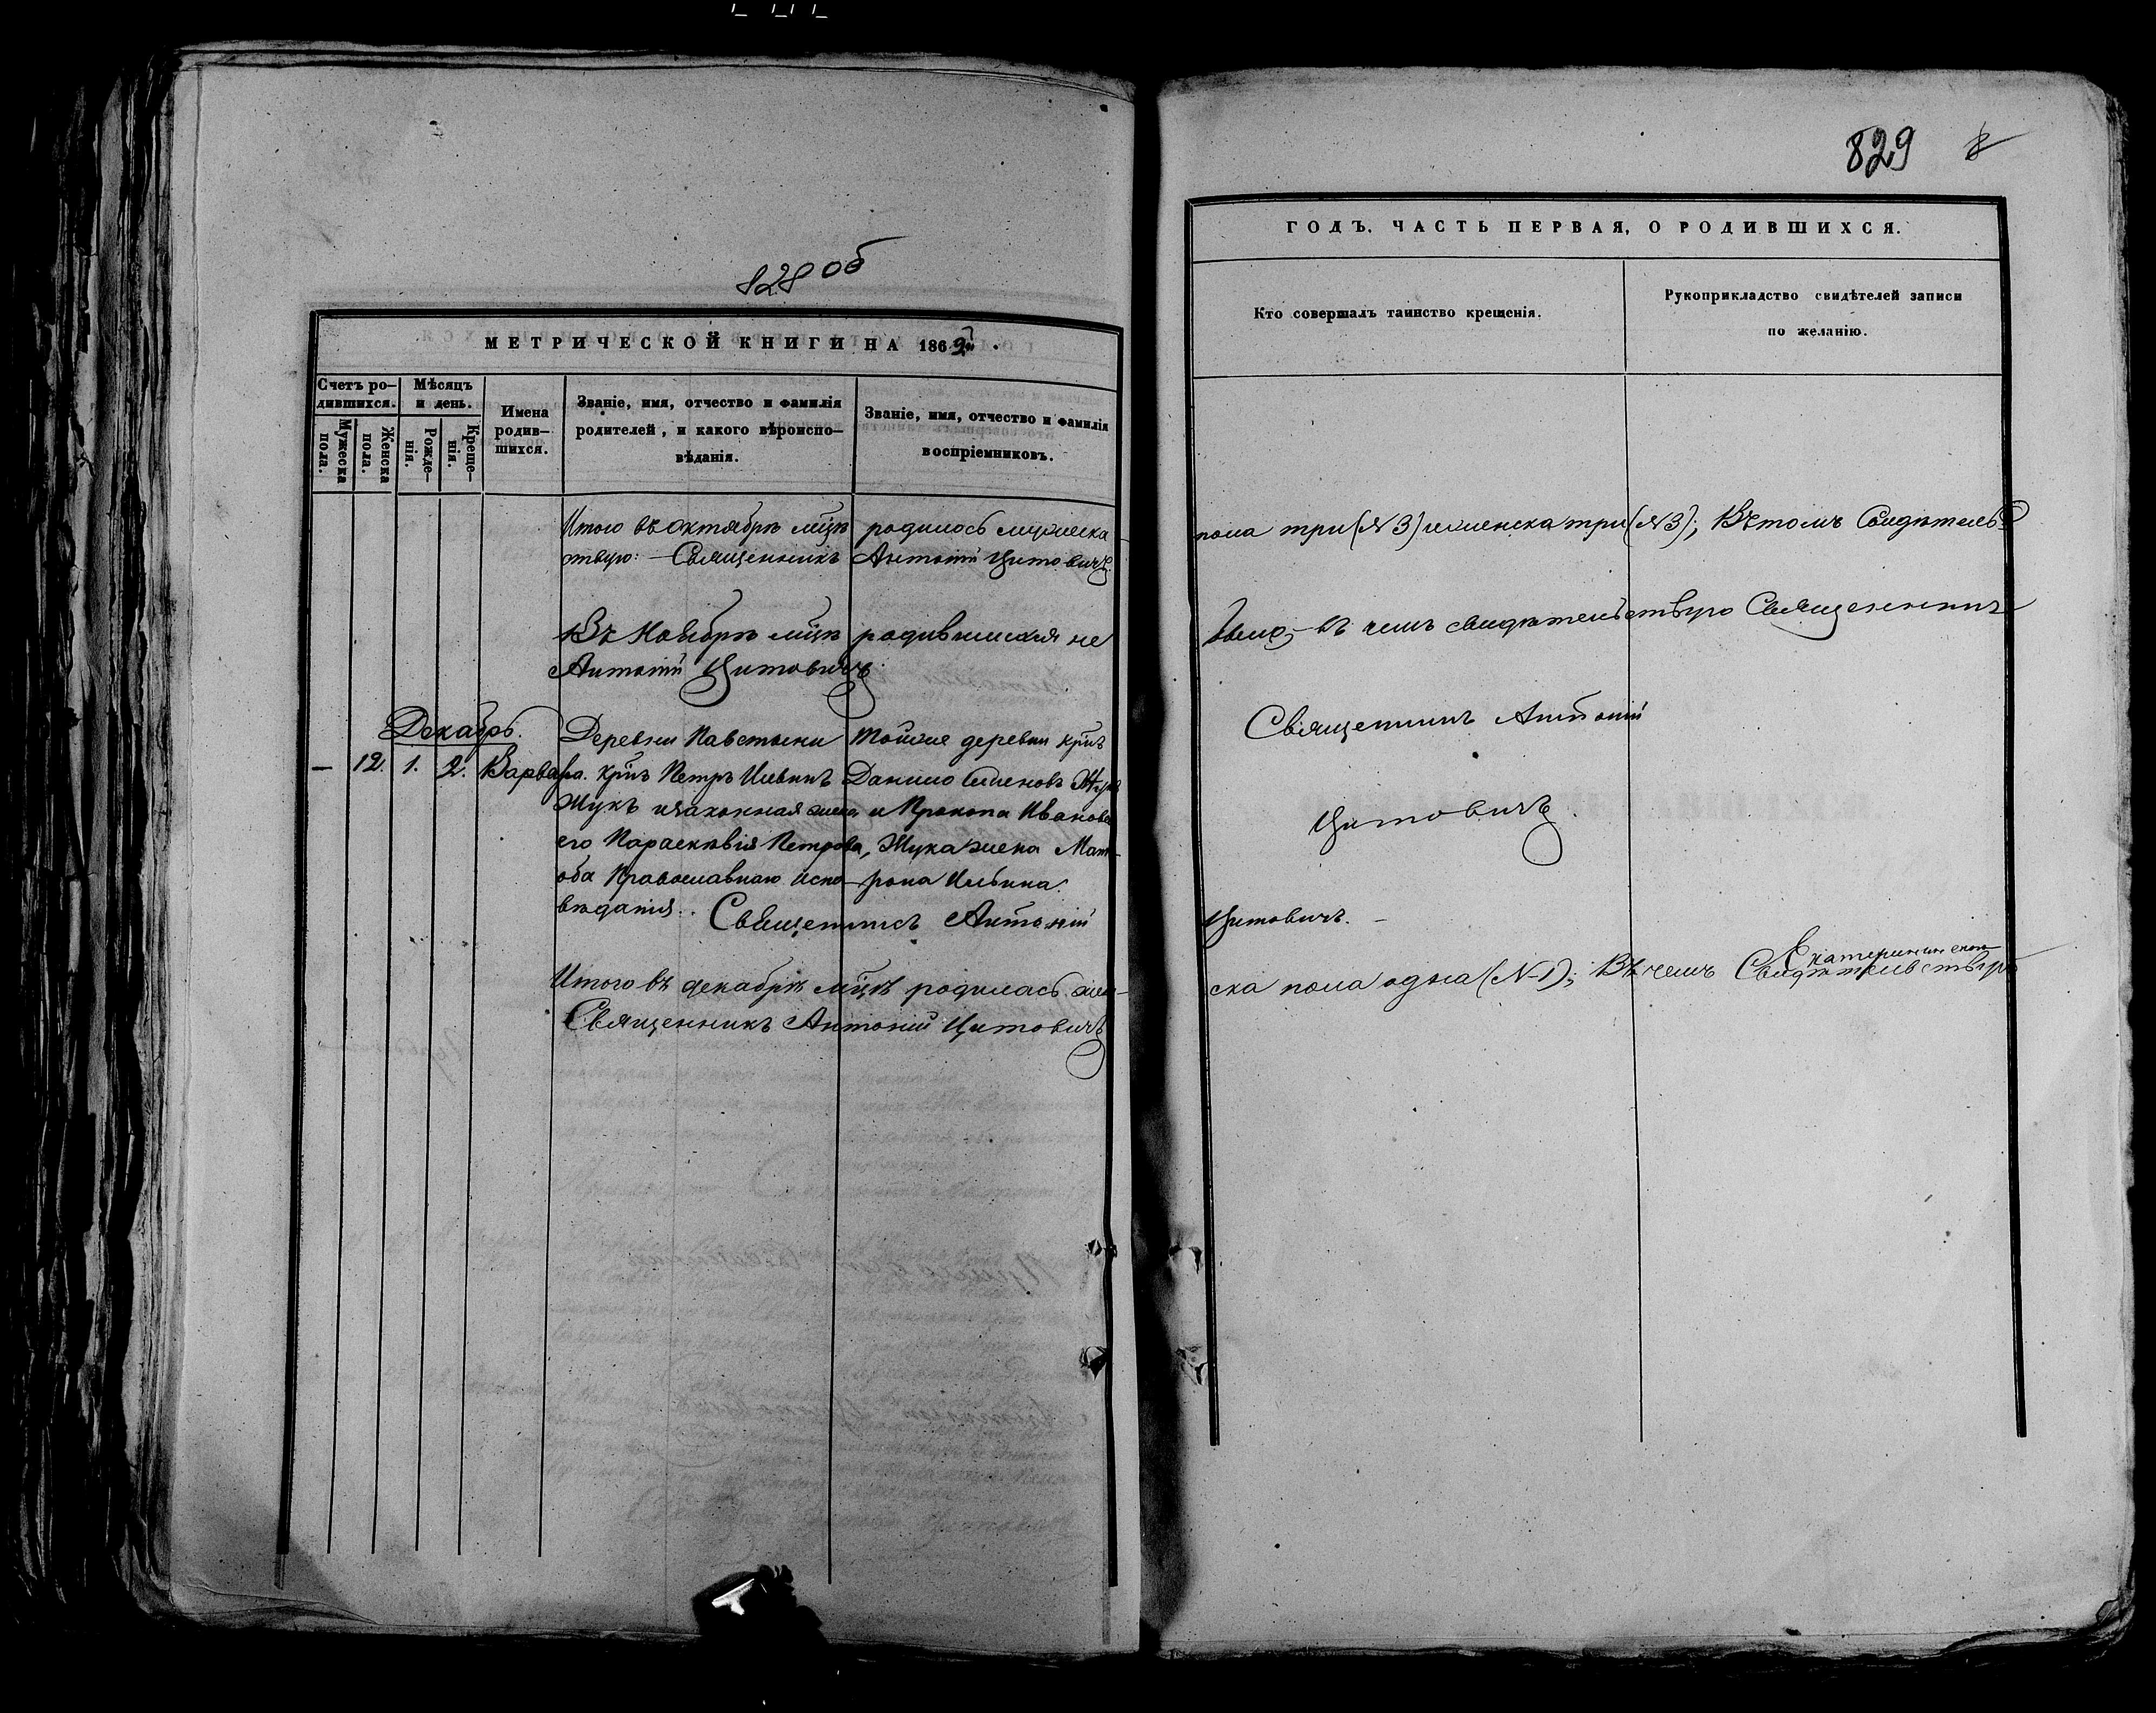 828 об
МЕТРИЧЕСКОЙ КНИГИ НА 1862й.
Счетъ ро-
дившихся.
Мѣсяцъ
и день.
Мужеска
пола.
Женска
пола.
Рожде-
нія.
Креще-
нія.
Имена
родив-
шихся.
Званіе, имя, отчество и фамилія
родителей, и какого вѣроиспо-
вѣданія.
Званіе, имя, отчество и фамилія
воспріемниковъ.
Итого въ октябрѣ мцѣ родилось мужеска
ствую: — Священникъ Антоній Цитовичъ.
Въ Ноябрѣ мцѣ родившихся не
Антоній Цитовичъ
Декабрь.
— 12. 1. 2. Варвара.
Деревни Павстыни
крнъ Петръ Ильинъ
Жукъ и законная жена
его Параскѣвія Петрова,
оба Православнаго испо-
вѣданія.
Тойже деревни крнъ
Данило Семеновъ Жукъ
и Прокопа Иванова
Жука жена Мат-
рона Ильина.
Священникъ Антоній
Итого въ декабрѣ мцѣ родилась жен-
Священникъ Антоній Цитовичъ
829
ГОДЪ. ЧАСТЬ ПЕРВАЯ, О РОДИВШИХСЯ.
Кто совершалъ таинство крещенія.
Рукоприкладство свидѣтелей записи
по желанію.
пола три (N 3) и женска три (N 3); Въ томъ Свидѣтель-
было; въ чемъ свидѣтельствую Священникъ
Священникъ Антоній
Цитовичъ.
Цитовичъ. —
ска пола одна (N-1); Въ чемъ Свидѣтельствую